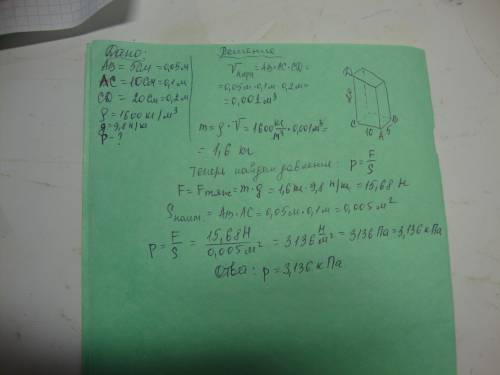 Дано:
AB = 5см = 0,05м
AC = 10см = 0,1м
CD = 20см = 0,2м
ρ = 1600 кг/м³
g = 9,8 н/кг
p - ?
Решение
V пар = AB·AC·CD =
= 0,05м·0,1м·0,2м =
= 0,001 м³
m = ρ·V = 1600 кг/м³ · 0,001м³ =
= 1,6 кг
D
C
10
A
5
B
Теперь найдём давление: p = F/S
F = Fтяж = m·g = 1,6кг·9,8 н/кг = 15,68 Н
Sнаим. = AB·AC = 0,05м·0,1м = 0,005м²
p = F/S = 15,68Н/0,005м² = 3136 Н/м² = 3136 Па = 3,136 кПа
Ответ: p = 3,136 кПа.